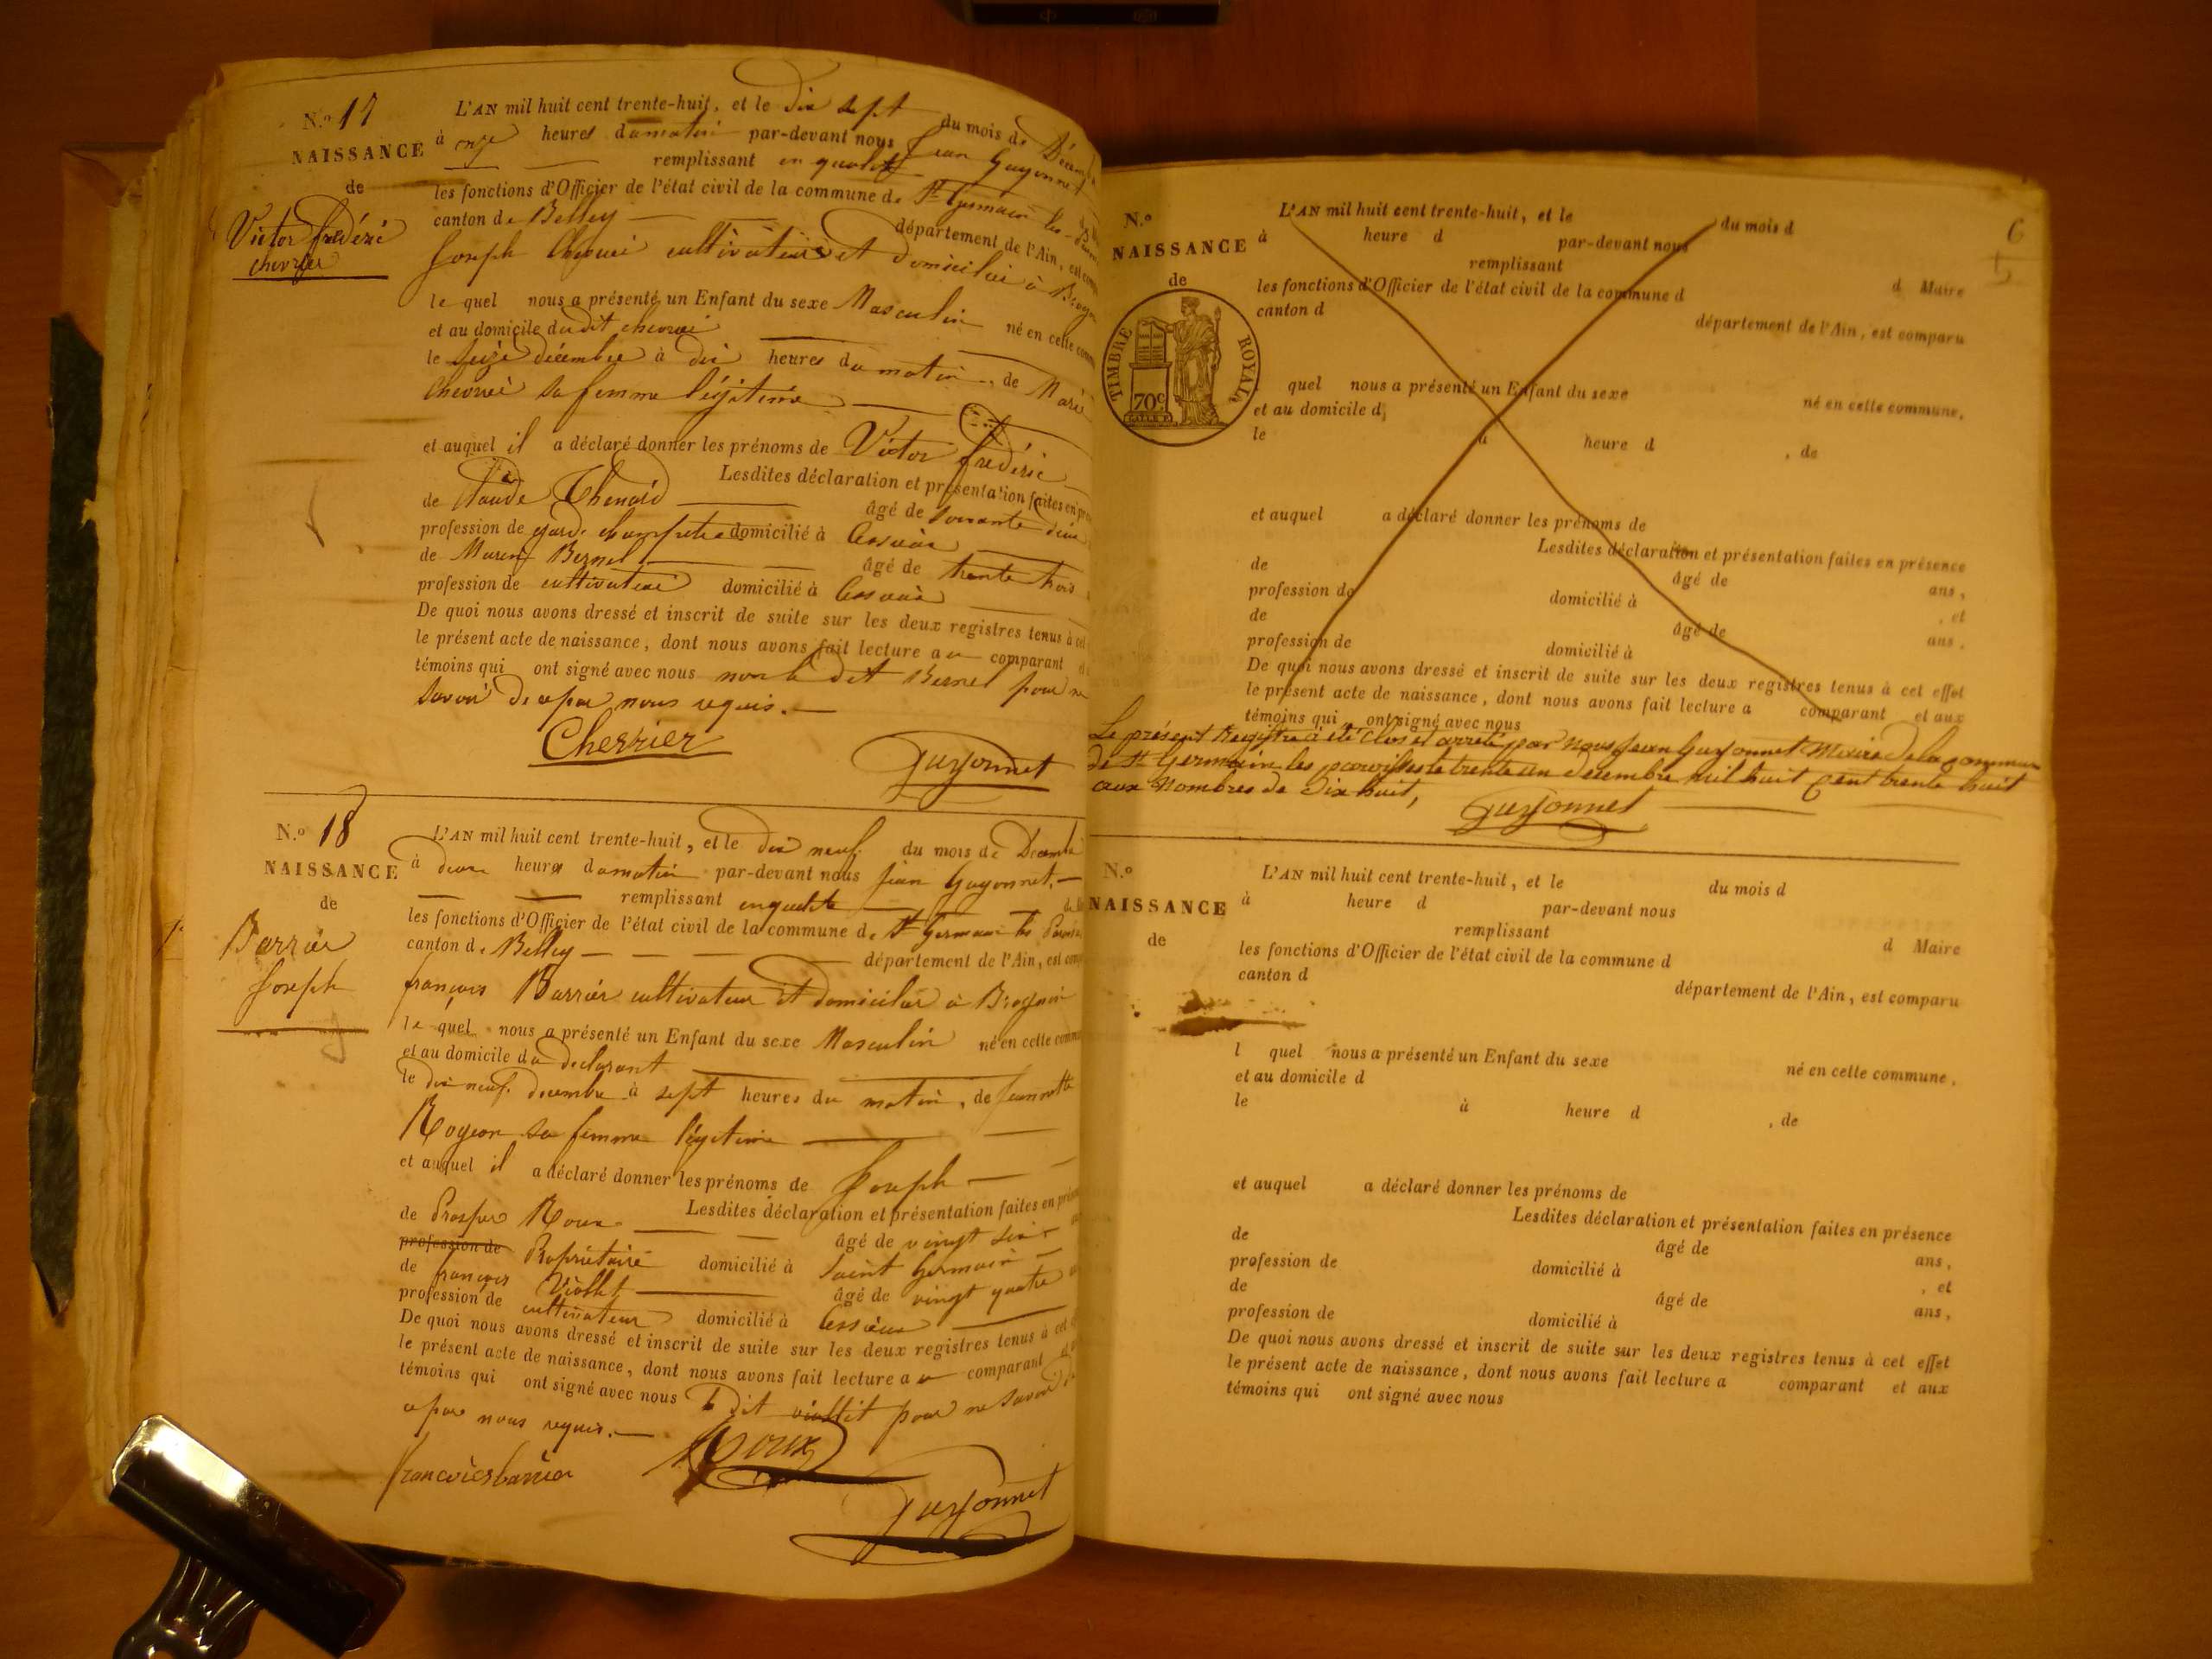 N.º 17
NAISSANCE
de
Victor frédéric
chevrier
L'AN mil huit cent trente-huit, et le dix sept du mois de Décemb
à onze heures du matin par-devant nous Jean Guyonnet
remplissant en qualité
les fonctions d'Officier de l'état civil de la commune de St Germain les
canton de Belley département de l'Ain, est com
Joseph cultivateur et domicilié à
le quel nous a présenté un Enfant du sexe Masculin né en cette comm
et au domicile du dit
le seize décembre à dix heures du matin, de Marie
sa femme légitime
et auquel il a déclaré donner les prénoms de Victor frédéric
Lesdites déclaration et présentation faites en pré
de Claude âgé de soixante deux
profession de garde champetre domicilié à
de Bernel âgé de trente trois
profession de cultivateur domicilié à
De quoi nous avons dressé et inscrit de suite sur les deux registres tenus à cet
le présent acte de naissance, dont nous avons fait lecture au comparant
témoins qui ont signé avec nous non le dit Bernel pour ne
savoir de ce par nous requis.
Cherrier
Guyonnet
N.º 18
NAISSANCE
de
Barrier
Joseph
L'AN mil huit cent trente-huit, et le dix neuf du mois de Décembre
à heures du matin par-devant nous Jean Guyonnet,
remplissant en qualité
les fonctions d'Officier de l'état civil de la commune de St Germain les
canton de Belley département de l'Ain, est comp
françois Barrier cultivateur et domicilié à
le quel nous a présenté un Enfant du sexe Masculin né en cette comm
et au domicile du déclarant
le dix neuf décembre à sept heures du matin, de Jeannette
sa femme légitime
et auquel il a déclaré donner les prénoms de Joseph
Lesdites déclaration et présentation faites en présen
de Prosper Roux âgé de vingt six
profession de Propriétaire domicilié à Saint Germain
de françois Viollet âgé de vingt quatre
profession de cultivateur domicilié à
De quoi nous avons dressé et inscrit de suite sur les deux registres tenus à cet
le présent acte de naissance, dont nous avons fait lecture au comparant
témoins qui ont signé avec nous dit pour ne savoir
ce par nous requis.
Roux
Guyonnet
6
N.º
NAISSANCE
de
TIMBRE ROYAL
70c
L'AN mil huit cent trente-huit, et le du mois d
à heure d par-devant nous
remplissant
les fonctions d'Officier de l'état civil de la commune d d Maire
canton d
département de l'Ain, est comparu
quel nous a présenté un Enfant du sexe né en cette commune,
et au domicile d
le à heure d , de
et auquel a déclaré donner les prénoms de
Lesdites déclaration et présentation faites en présence
de âgé de ans,
profession de domicilié à , et
de âgé de ans,
profession de domicilié à
De quoi nous avons dressé et inscrit de suite sur les deux registres tenus à cet effet
le présent acte de naissance, dont nous avons fait lecture a comparant et aux
témoins qui ont signé avec nous
Le présent Registre à été Clos et arreté par nous Jean Guyonnet Maire de la commune
de St Germain les paroisses le trente un decembre mil huit Cent trente huit
aux Nombres de Dix huit,
Guyonnet
N.º
NAISSANCE
de
L'AN mil huit cent trente-huit, et le du mois d
à heure d par-devant nous
remplissant
les fonctions d'Officier de l'état civil de la commune d d Maire
canton d
département de l'Ain, est comparu
l quel nous a présenté un Enfant du sexe né en cette commune,
et au domicile d
le à heure d , de
et auquel a déclaré donner les prénoms de
Lesdites déclaration et présentation faites en présence
de âgé de ans,
profession de domicilié à , et
de âgé de ans,
profession de domicilié à
De quoi nous avons dressé et inscrit de suite sur les deux registres tenus à cet effet
le présent acte de naissance, dont nous avons fait lecture a comparant et aux
témoins qui ont signé avec nous